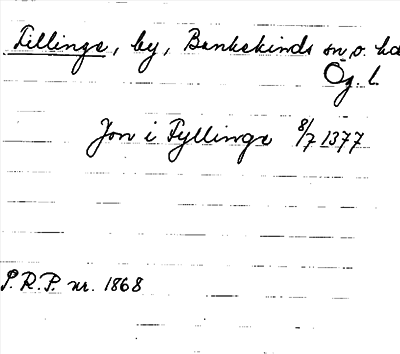 Tillinge, by, Bankekinds sn o. hd
Ög. l.
Jon i Tyllinge 8/7 1377
P.R.P. nr. 1868